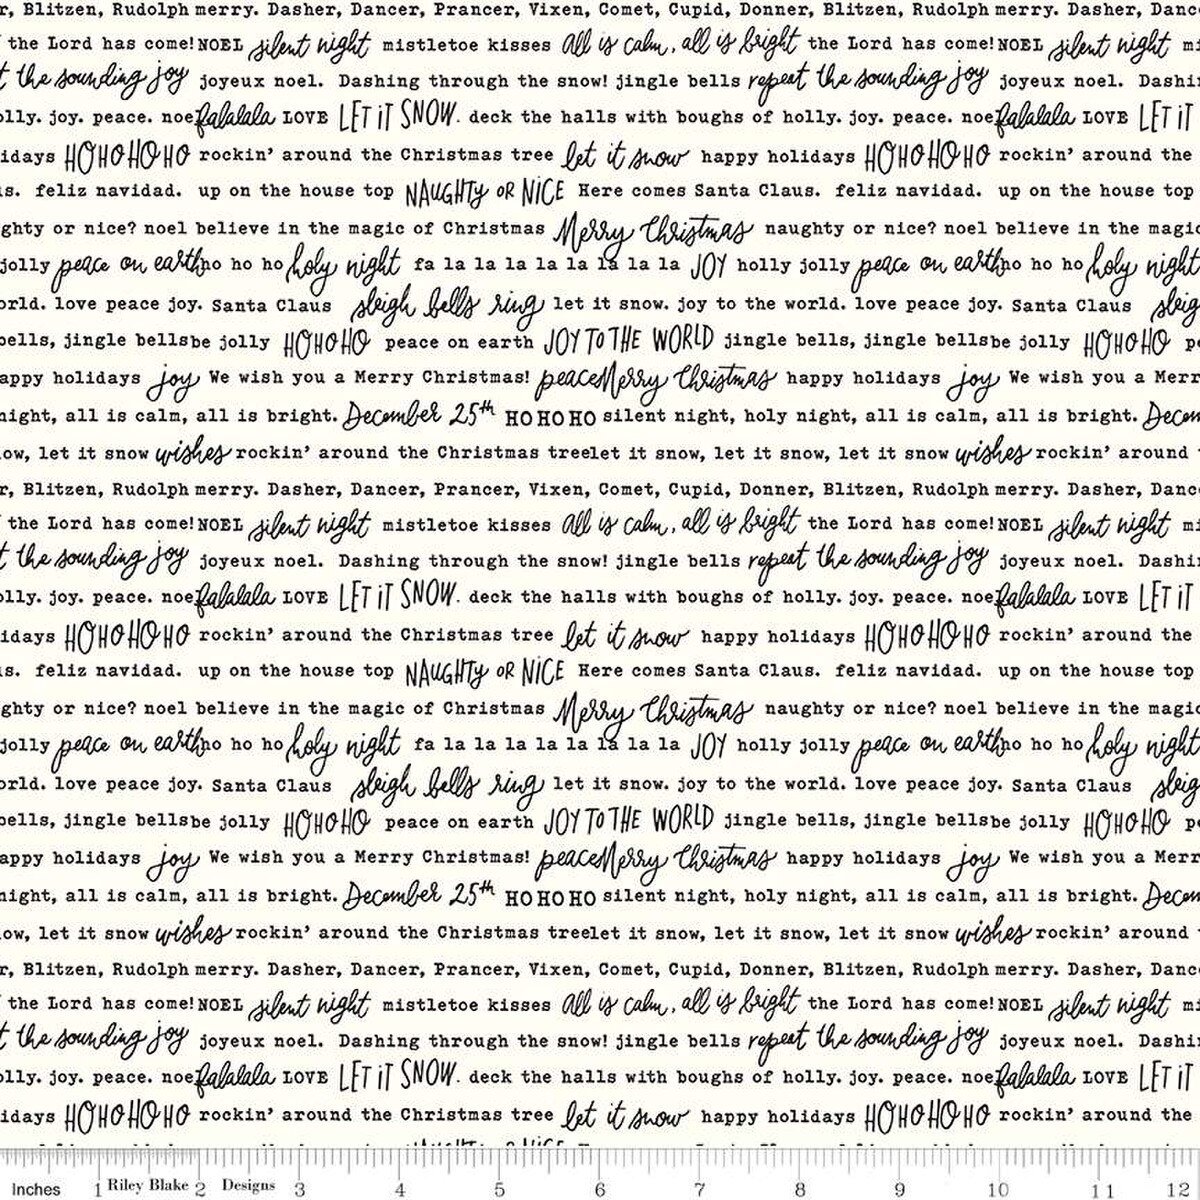 r, Blitzen, Rudolph merry. Dasher, Dancer, Prancer, Vixen, Comet, Cupid, Donner, Blitzen, Rudolph merry. Dasher, Dancer, Prancer, Vixen, Comet, Cupid, Donner, Blitzen, Rudolph merry. Dasher, Danc
the Lord has come! NOEL silent night mistletoe kisses All is calm, all is bright the Lord has come! NOEL silent night mi
t the sounding joy joyeux noel. Dashing through the snow! jingle bells repeat the sounding joy joyeux noel. Dashi
olly. joy. peace. noe falalala LOVE LET iT SNOW. deck the halls with boughs of holly. joy. peace. noe falalala LOVE LET iT
idays HOHOHOHO rockin' around the Christmas tree let it snow happy holidays HOHOHOHO rockin' around the
s. feliz navidad. up on the house top NAUGHTY OR NICE Here comes Santa Claus. feliz navidad. up on the house top
ghty or nice? noel believe in the magic of Christmas Merry Christmas naughty or nice? noel believe in the magic
jolly peace on earth ho ho ho holy night fa la la la la la la la la JOY holly jolly peace on earth ho ho ho holy night
orld. love peace joy. Santa Claus sleigh bells ring let it snow. joy to the world. love peace joy. Santa Claus sleig
bells, jingle bells be jolly HOHOHO peace on earth JOY TO THE WORLD jingle bells, jingle bells be jolly HOHOHO pe
appy holidays joy We wish you a Merry Christmas! peace Merry Christmas happy holidays joy We wish you a Merr
night, all is calm, all is bright. December 25th HO HO HO silent night, holy night, all is calm, all is bright. Decem
ow, let it snow wishes rockin' around the Christmas tree let it snow, let it snow, let it snow wishes rockin' around
r, Blitzen, Rudolph merry. Dasher, Dancer, Prancer, Vixen, Comet, Cupid, Donner, Blitzen, Rudolph merry. Dasher, Danc
the Lord has come! NOEL silent night mistletoe kisses All is calm, all is bright the Lord has come! NOEL silent night mi
t the sounding joy joyeux noel. Dashing through the snow! jingle bells repeat the sounding joy joyeux noel. Dashi
olly. joy. peace. noe falalala LOVE LET iT SNOW. deck the halls with boughs of holly. joy. peace. noe falalala LOVE LET iT
idays HOHOHOHO rockin' around the Christmas tree let it snow happy holidays HOHOHOHO rockin' around the
s. feliz navidad. up on the house top NAUGHTY OR NICE Here comes Santa Claus. feliz navidad. up on the house top
ghty or nice? noel believe in the magic of Christmas Merry Christmas naughty or nice? noel believe in the magic
jolly peace on earth ho ho ho holy night fa la la la la la la la la JOY holly jolly peace on earth ho ho ho holy night
orld. love peace joy. Santa Claus sleigh bells ring let it snow. joy to the world. love peace joy. Santa Claus sleig
bells, jingle bells be jolly HOHOHO peace on earth JOY TO THE WORLD jingle bells, jingle bells be jolly HOHOHO pe
appy holidays joy We wish you a Merry Christmas! peace Merry Christmas happy holidays joy We wish you a Merr
night, all is calm, all is bright. December 25th HO HO HO silent night, holy night, all is calm, all is bright. Decem
ow, let it snow wishes rockin' around the Christmas tree let it snow, let it snow, let it snow wishes rockin' around
r, Blitzen, Rudolph merry. Dasher, Dancer, Prancer, Vixen, Comet, Cupid, Donner, Blitzen, Rudolph merry. Dasher, Danc
the Lord has come! NOEL silent night mistletoe kisses All is calm, all is bright the Lord has come! NOEL silent night mi
t the sounding joy joyeux noel. Dashing through the snow! jingle bells repeat the sounding joy joyeux noel. Dashi
olly. joy. peace. noe falalala LOVE LET iT SNOW. deck the halls with boughs of holly. joy. peace. noe falalala LOVE LET iT
idays HOHOHOHO rockin' around the Christmas tree let it snow happy holidays HOHOHOHO rockin' around the
Inches 1 Riley Blake 2 Designs 3 4 5 6 7 8 9 10 11 12